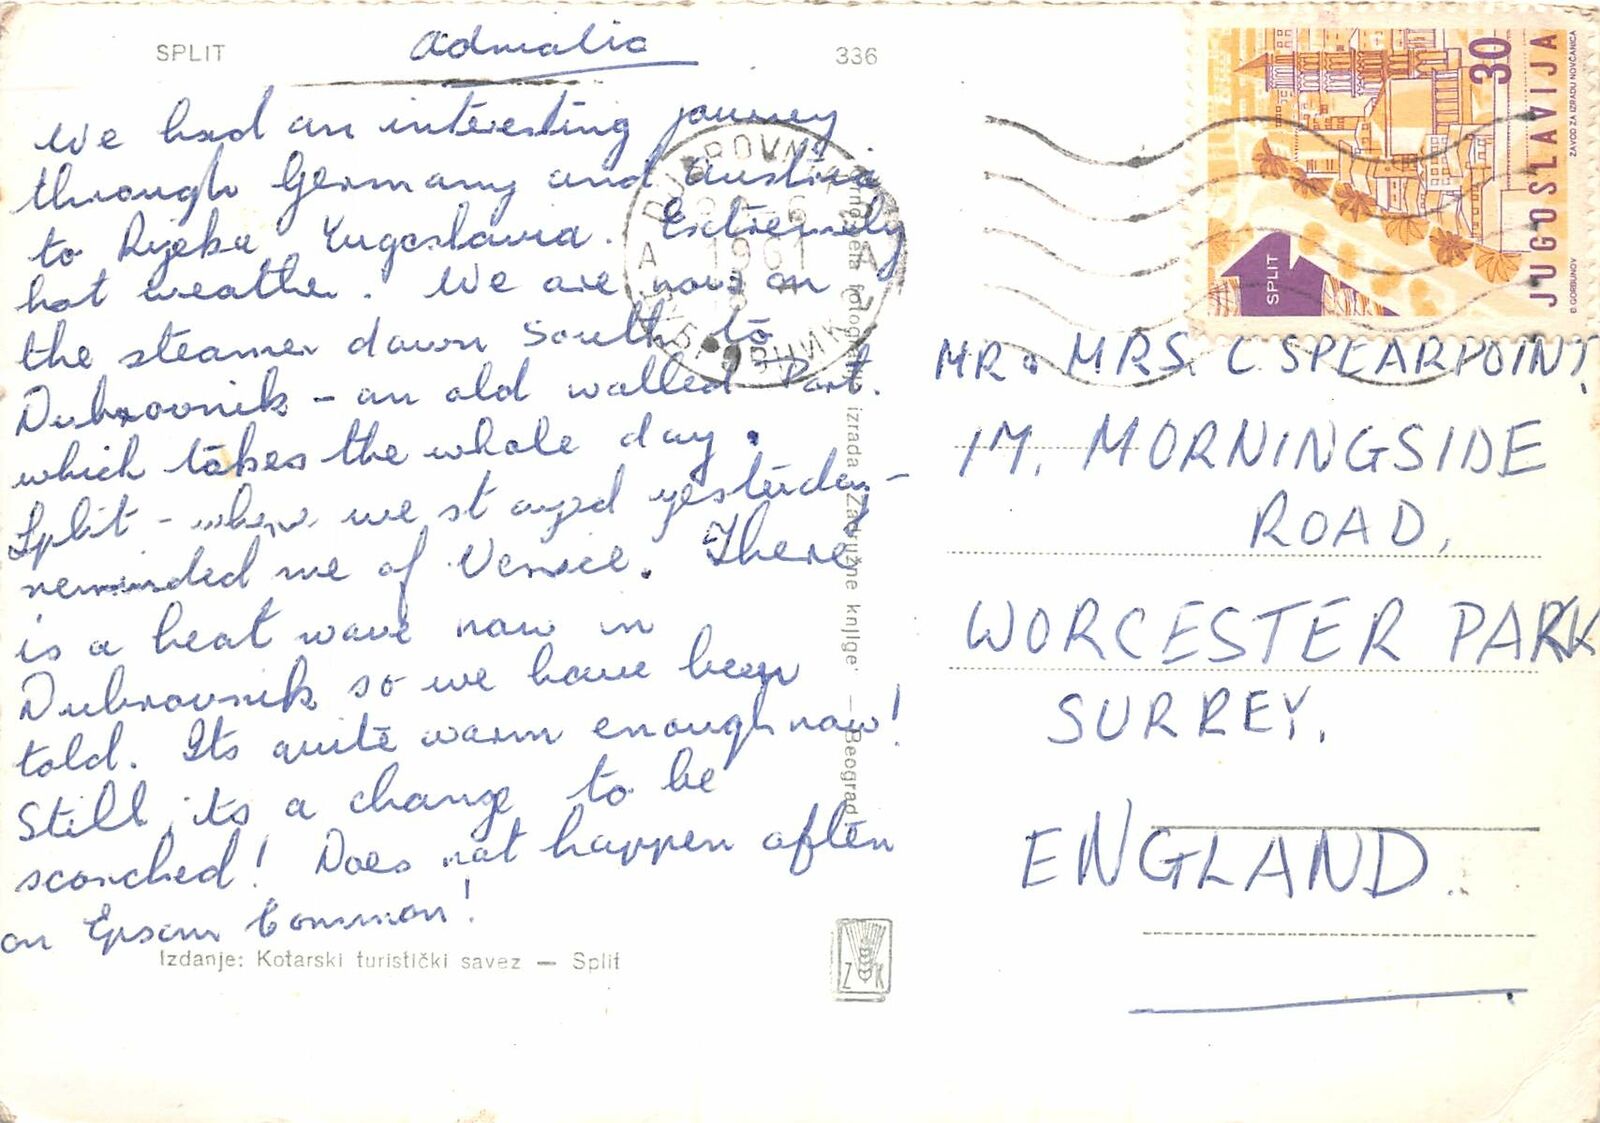 SPLIT
Adriatic
336
We had an interesting journey
through Germany and Austria
to Rijeka Yugoslavia. Extremely
hot weather. We are now on
the steamer down South to
Dubrovnik - an old walled Port.
which takes the whole day.
Split - where we stayed yesterday -
reminded me of Venice. There
is a heat wave now in
Dubrovnik so we have been
told. Its quite warm enough now!
Still its a change to be
scorched! Does not happen often
on Epsom Common!
Izdanje: Kotarski turistički savez — Split
izrada „Zadružne knjige" — Beograd
Z K
DUBROVNIK
1961
A A
ДУБРОВНИК
30
JUGOSLAVIJA
ZAVOD ZA IZRADU NOVČANICA
B. GORBUNOV
SPLIT
MR & MRS. C SPEARPOINT,
17, MORNINGSIDE
ROAD,
WORCESTER PARK
SURREY.
ENGLAND.